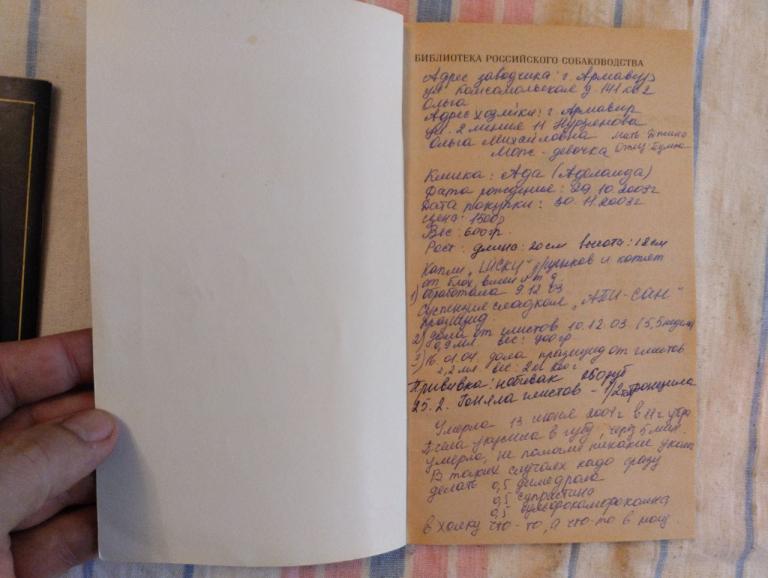 БИБЛИОТЕКА РОССИЙСКОГО СОБАКОВОДСТВА
Адрес заводчика: г. Армавир
ул Комсомольская д. 141 кв 2
Ольга
Адрес хозяйки: г. Армавир
ул. 2 линия
Ольга Михайловна мать
Мопс - девочка отец
Кличка: Ада (Аделаида)
Дата рождения: 29 10. 2003г
Дата покупки: 30. 11. 2003г
Цена: 1500р
Вес: 600гр.
Рост: длина: 20см высота: 18см
Капли щенков и котят
от блох, вшей и т д.
1) Обработала 9.12.03
Суспензия сладкая „АПИ-САН"
празицид
2) дала от глистов 10.12.03 (5,5 недель)
0,9мл вес: 900гр
3) 16.01.04 дала празицид от глистов
2,2 мл. вес: 2кг
Прививка: нобивак
25.2. Гоняла глистов - 1/2
Умерла 13 июня 2004г в утро
Пчела укусила в губу, через 5 мин.
умерла, не помогли никакие уколы
В таких случаях надо сразу
делать 0,5 димедрола
0,5 супрастина
0,5 сульфокамфокаина
в холку что-то, а что-то в